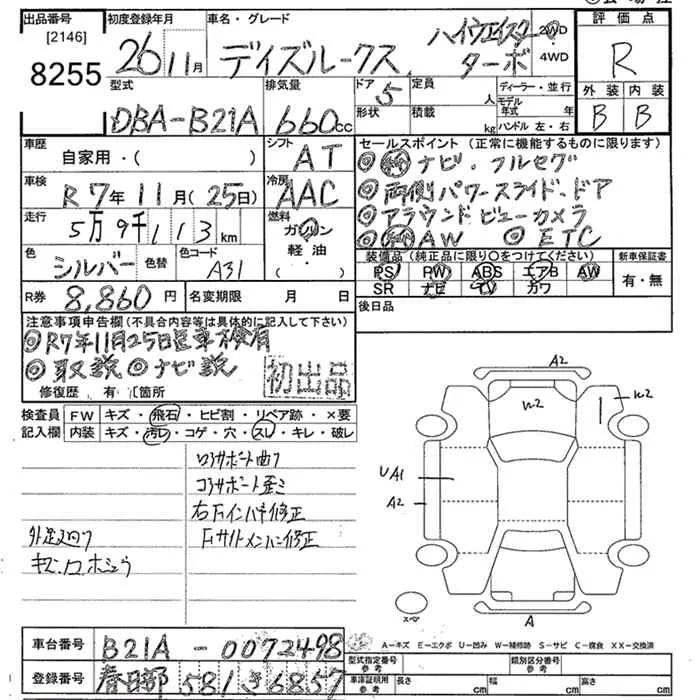 出品番号
[2146]
8255
初度登録年月
26 11月
車名・グレード
デイズルークス ハイウェイスター ターボ
2WD
・4WD
評価点
R
外装 内装
B B
型式
DBA-B21A
排気量
660cc
ドア
5
形状
定員
人
積載
kg
ディーラー・並行
モデル年式 年
ハンドル 左・右
車歴
自家用・( )
シフト
AT
車検
R7年11月(25日)
冷房
AAC
走行
5万9千113km
燃料
ガソリン
軽油・
( )
色
シルバー
色替
色コード
A31
R券
8,860円
名変期限 月 日
セールスポイント (正常に機能するものに限ります)
◎純ナビ・フルセグ
◎両側パワースライドドア
◎アラウンドビューカメラ
◎純AW ◎ETC
装備品(純正品に限り○をつけてください)
PS PW ABS エアB AW
SR ナビ TV カワ
新車保証書
有・無
後日品
注意事項申告欄(不具合内容等は具体的に記入して下さい)
◎R7年11月25日迄車検有
◎取説 ◎ナビ説
修復歴 有 箇所
初出品
検査員
記入欄
FW キズ・飛石・ヒビ割・リペア跡・×要
内装 キズ・汚レ・コゲ・穴・スレ・キレ・破レ
コアサポート曲り
コアサポート歪ミ
右Fインパネ修正
Fサイドメンバー修正
外足廻り
キズ・
A2
W2
W2
UA1
A2
A
スペア
A―キズ E―エクボ U―凹み W―補修跡 S―サビ C―腐食 XX―交換済
車台番号
B21A - 0072498
登録番号
春日部 581 き 6857
型式指定番号
参考
類別区分番号
参考
車庫証明用
参考
長さ cm
幅 cm
高さ cm